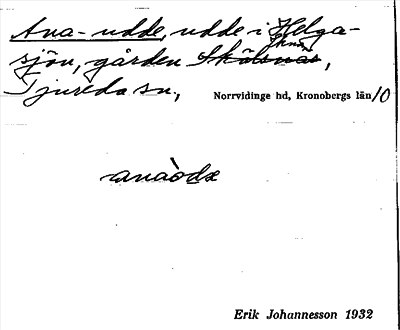 Ana-udde, udde i Helga-
sjön, gården Skälsnäs,
Tjureda sn., Norrvidinge hd, Kronobergs län 10
anaòdə
Erik Johannesson 1932